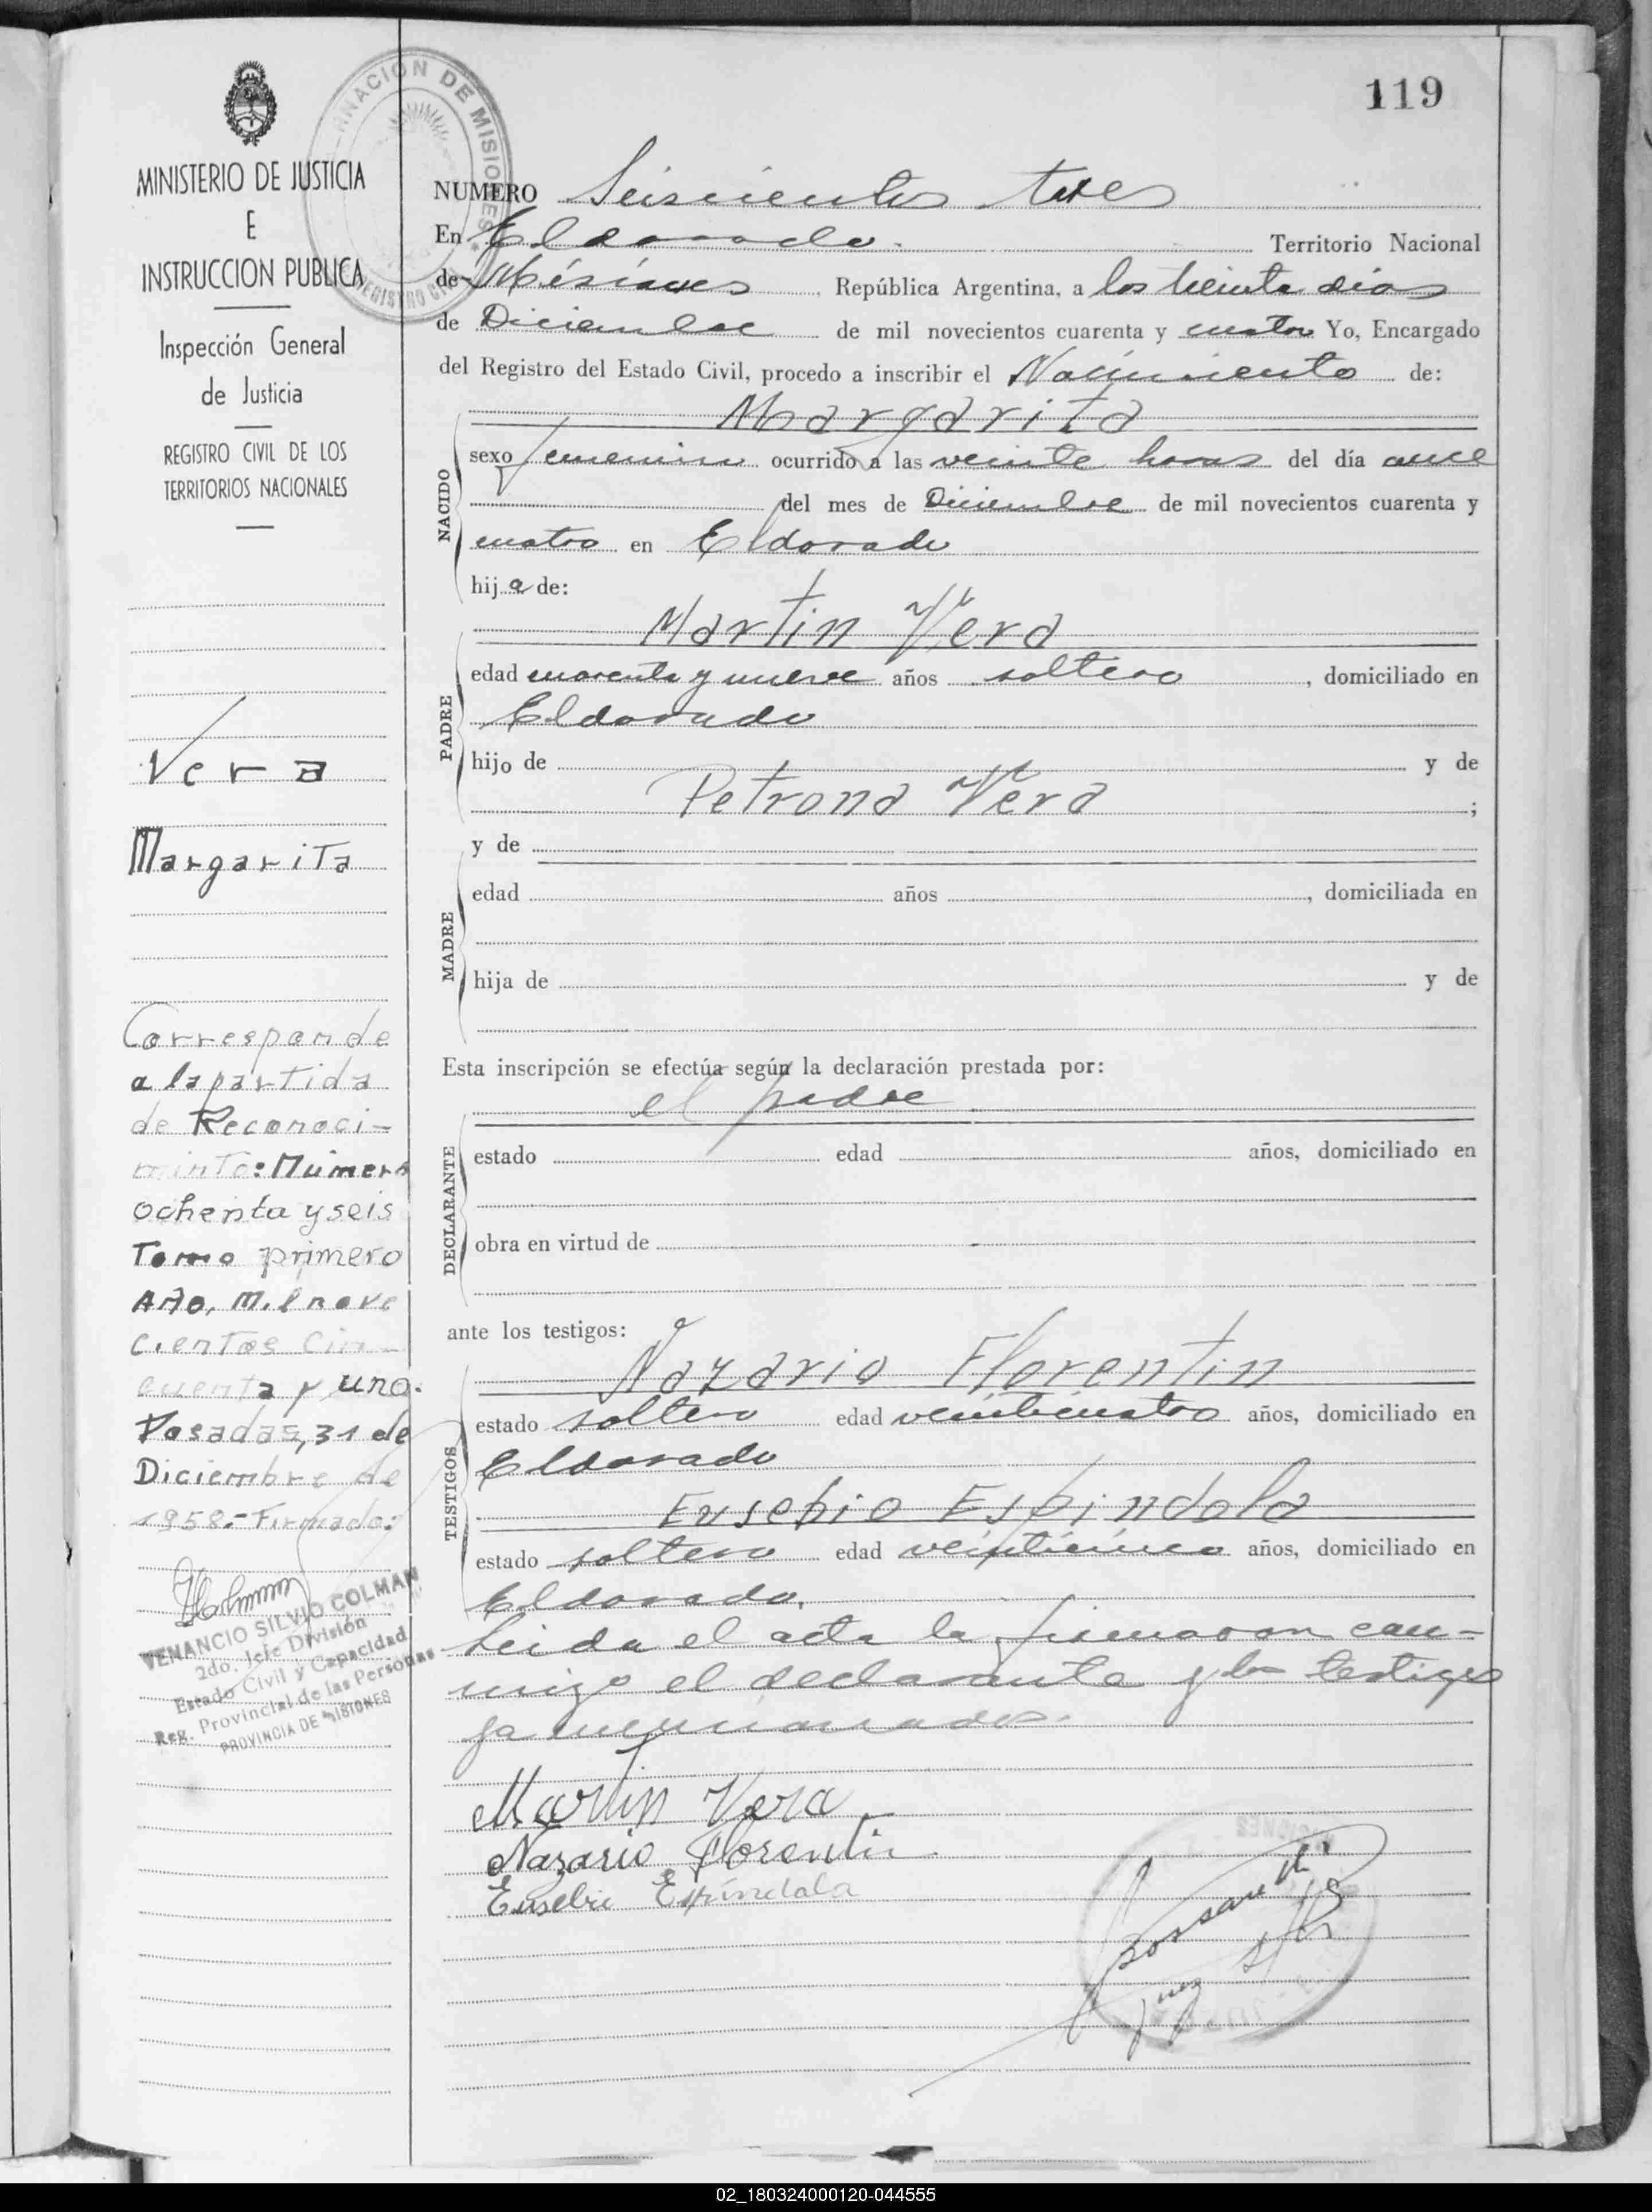 119
MINISTERIO DE JUSTICIA
E
INSTRUCCION PUBLICA
Inspección General
de Justicia
REGISTRO CIVIL DE LOS
TERRITORIOS NACIONALES
Vera
Margarita
Corresponde
a la partida
de Reconoci-
minto: Número
ochenta y seis
Tomo primero
Año, Mil nove
cientos cin-
cuenta y uno.
Posadas, 31 de
Diciembre de
1958.- Firmado:
VENANCIO SILVIO COLMAN
2do. Jefe División
Estado Civil y Capacidad
Reg. Provincial de las Personas
PROVINCIA DE MISIONES
NACION DE MISIONES
REGISTRO CI
NUMERO Seiscientos tres
En Eldorado. Territorio Nacional
de Misiones República Argentina, a los treinta dias
de Diciembre de mil novecientos cuarenta y cuatro Yo, Encargado
del Registro del Estado Civil, procedo a inscribir el Nacimiento de:
Margarita
NACIDO
sexo femenino ocurrido a las veinte horas del día once
del mes de Diciembre de mil novecientos cuarenta y
cuatro en Eldorado
hija de:
Martin Vera
PADRE
edad cuarenta y nueve años soltero, domiciliado en
Eldorado
hijo de y de
Petrona Vera ;
y de
MADRE
edad años , domiciliada en
hija de y de
Esta inscripción se efectúa según la declaración prestada por:
el padre
DECLARANTE
estado edad años, domiciliado en
obra en virtud de
ante los testigos:
Nazario Florentin
TESTIGOS
estado soltero edad veinticuatro años, domiciliado en
Eldorado
Eusebio Espindola
estado soltero edad veinticinco años, domiciliado en
Eldorado.
Leida el acta la firmaron con-
migo el declarante y los testigos
ya mencionados.
Martin Vera
Nazario Florentin
Eusebio Espíndola
Juez
02_180324000120-044555